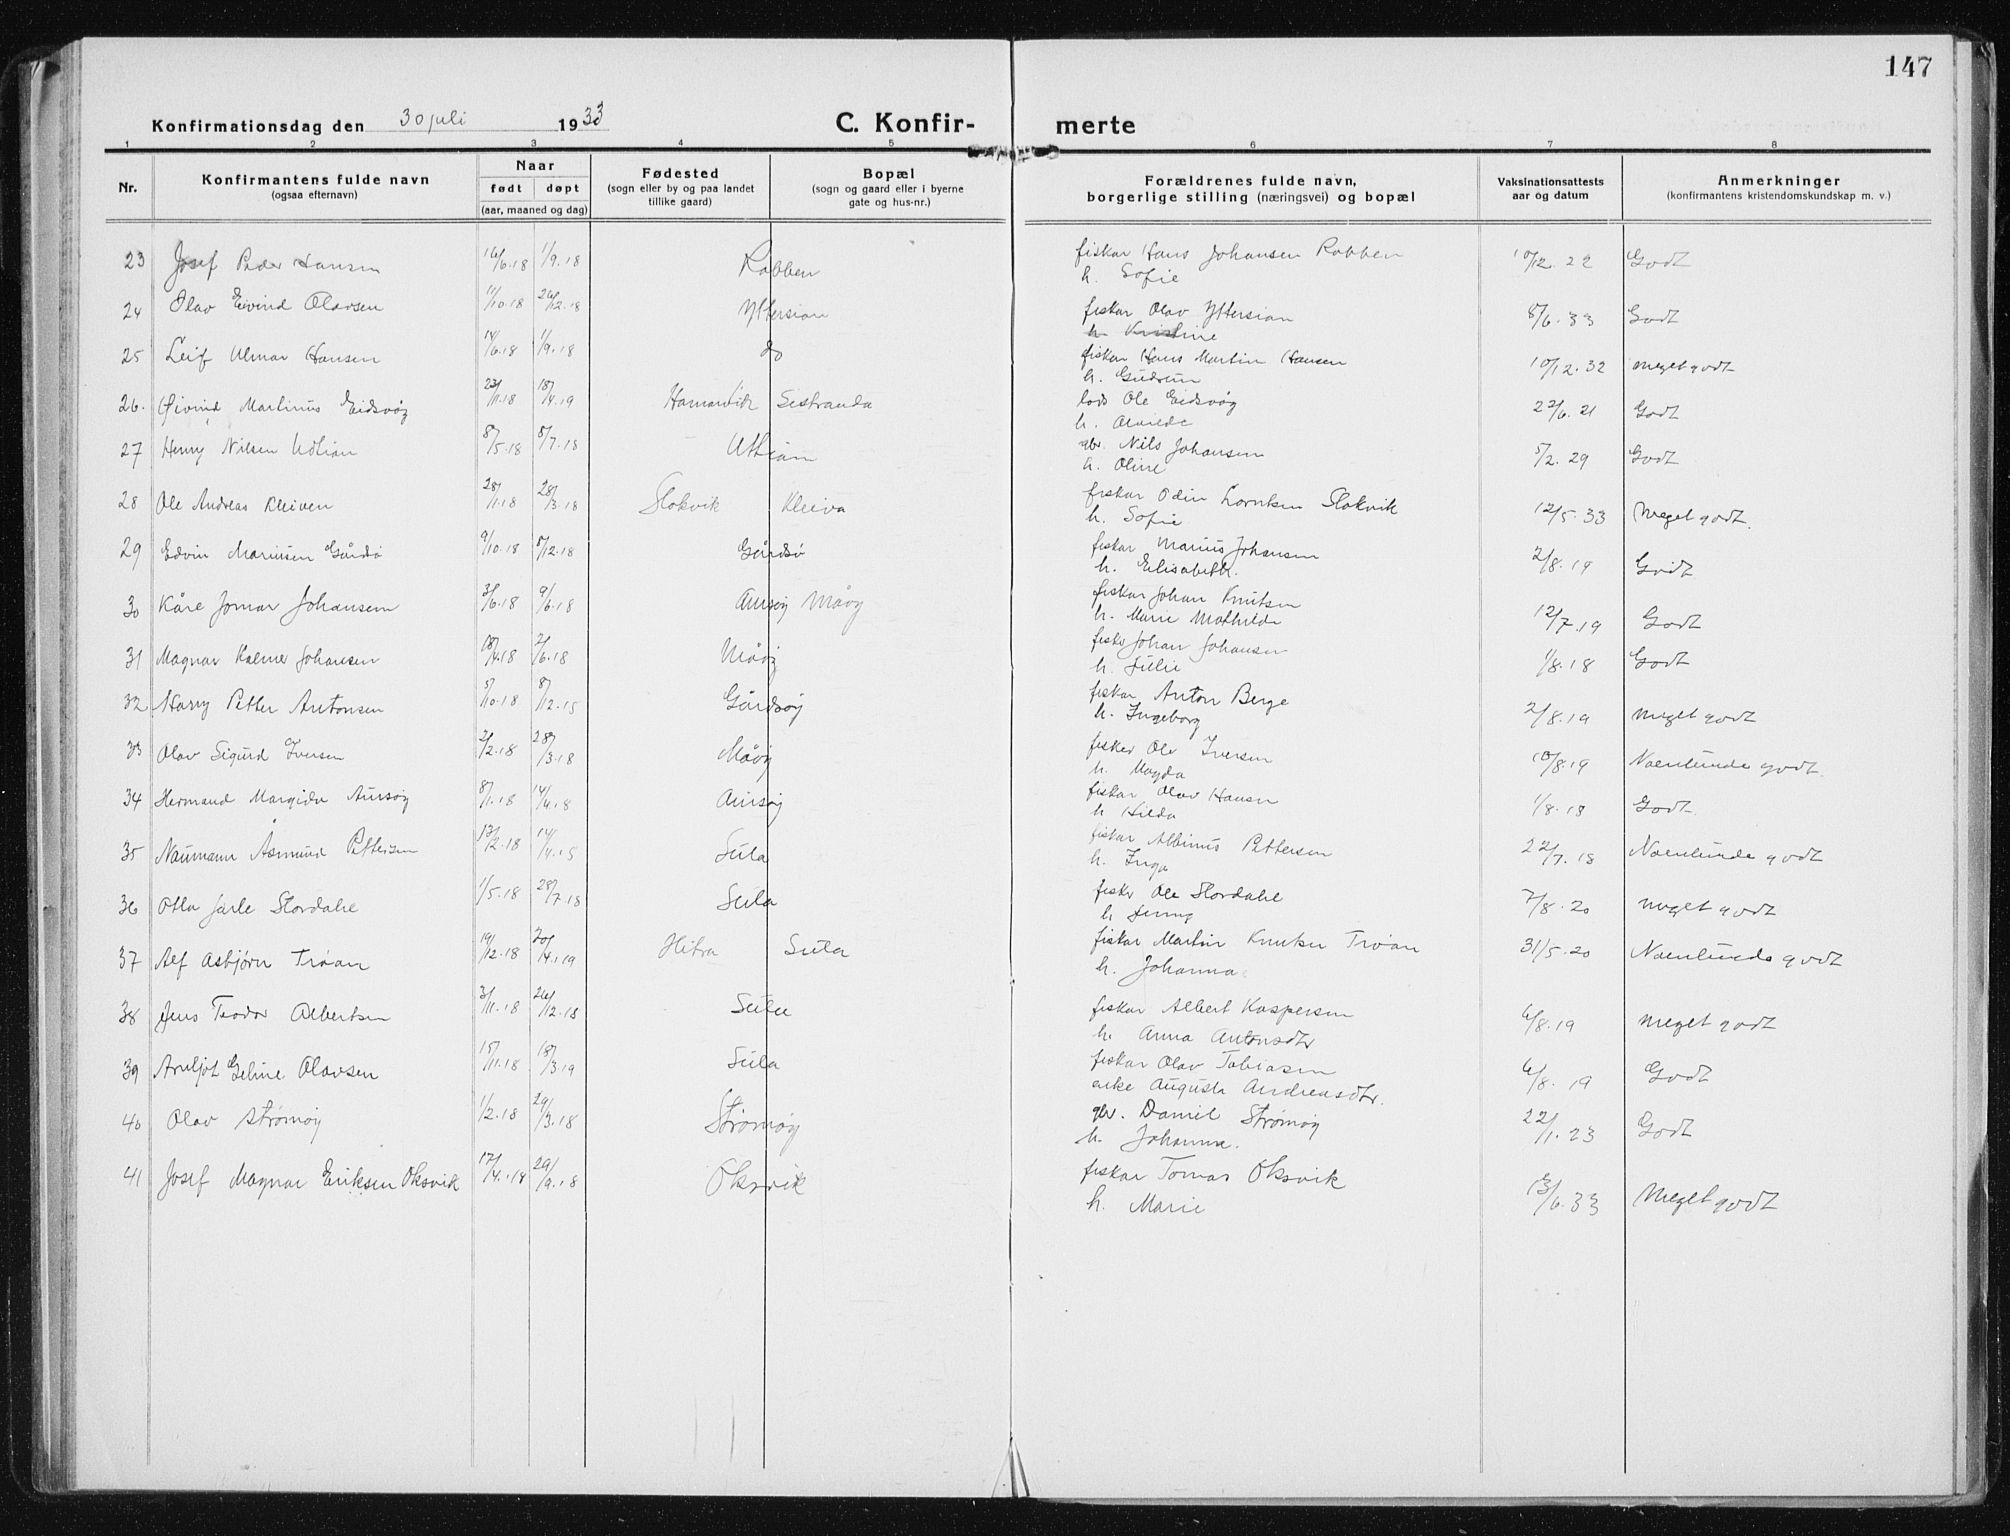 147
Konfirmationsdag den 30 juli 1933 C. Konfir- merte
1 2 3 4 5 6 7 8
Nr. Konfirmantens fulde navn (ogsaa efternavn) Naar født døpt (aar, maaned og dag) Fødested (sogn eller by og paa landet tillike gaard) Bopæl (sogn og gaard eller i byerne gate og hus-nr.) Forældrenes fulde navn, borgerlige stilling (næringsvei) og bopæl Vaksinationsattests aar og datum Anmerkninger (konfirmantens kristendomskundskap m. v.)
23 Josef Peder Hansen 16/6.18 1/9.18 Robben fiskar Hans Johansen Robben 10/12.22 Godt
h. Sofie
24 Olav Eivind Olavsen 11/10.18 26/12.18 Yttersian fiskar Olav Yttersian 8/6.33 Godt
h. Kristine
25 Leif Ulmar Hansen 14/6.18 1/9.18 do fiskar Hans Martin Hansen 10/12.32 meget godt
h. Gudrun
26. Øivind Martinus Eidsvåg 23/11.18 18/4.19 Hamarvik Sistranda los Ole Eidsvåg 22/6.21 Godt
h.
27 Henry Nilsen Utsian 8/5.18 5/7.18 gbr. Nils Johansen 5/2.29 Godt
h. Oline
28 Ole Andreas Kleiven 28/11.18 28/3.18 Slokvik Kleiva fiskar Odin Slokvik 12/5.33 Meget godt.
h. Sofie
29 Edvin Mariusen Gurdsø 9/10.18 8/12.18 Gurdsø fiskar Marius Johansen 2/8.19 Godt
h. Elisabeth.
30 Kåre Jomar Johansen 3/6.18 9/6.18 Ausøy Måøy fiskar Johan Knutsen 12/7.19 Godt
h. Marie Mathilde
31 Magnar Kalmer Johansen 18/4.18 2/6.18 Måøy fisker Johan Johansen 1/8.18 Godt
h. Julie
32 Harry Petter Antonsen 5/10.18 8/12.18 Gurdsøy fiskar Anton Berge 2/8.19 meget godt
h. Ingeborg
33 Olav Sigurd Iversen 2/2.18 28/3.18 Måøy fisker Ole Iversen 10/8.19 Noenlunde godt.
h. Magda
34 Hermand Margido Ausøy 8/1.18 14/4.18 Ausøy fiskar Olav Hansen 1/8.18 Godt.
h. Hilda
35 Naumann Asmund Pettersen 13/2.18 14/4.18 Sula fiskar Albinus Pettersen 22/7.18 Noenlunde godt
h. Inga
36 Otto Jarle Stordahl 1/5.18 28/7.18 Sula fisker Ole Stordahl 7/8.20 meget godt
h. Jenny
37 Alf Asbjørn Trøan 19/12.18 20/4.19 Hitra Sula fiskar Martin Knutsen Trøan 31/5.20 Noenlunde godt
h. Johanna
38 Jens Teodor Albertsen 3/11.18 26/12.18 Sula fiskar Albert Kaspersen 6/8.19 meget godt
h. Anna Antonsdtr
39 Arnljot Geline Olavsen 15/11.18 18/3.19 Sula fiskar Olav Tobiasen 6/8.19 Godt
enke Augusta Andreasdtr.
40 Olav Strømøy 1/2.18 29/3.18 Strømøy gbr. Daniel Strømøy 22/1.23 Godt
h. Johanna.
41 Josef Magnar Eriksen Oksvik 17/4.18 29/9.18 Oksvik fiskar Tomas Oksvik 13/6.33 Meget godt
h. Marie